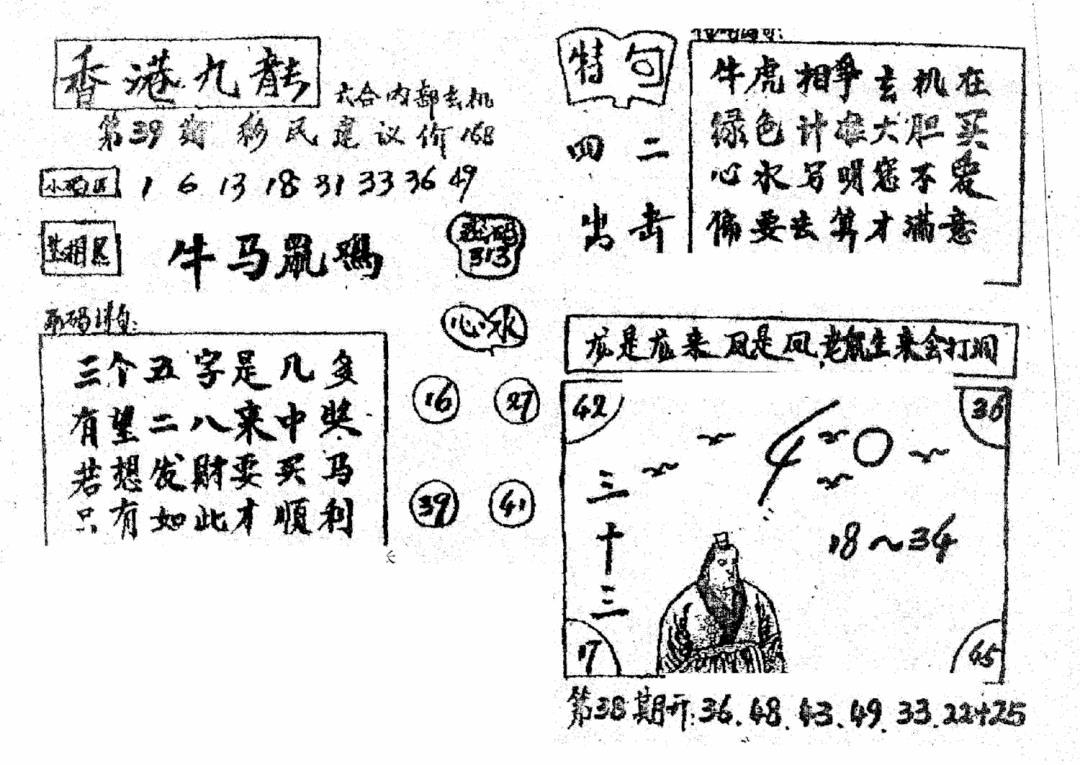 香港九龍
六合内部玄机
第39期 彩民建议价168
小码区 1 6 13 18 31 33 36 49
生相区 牛马鼠鸡
密码 313
心水
16 27
39 41
三个五字是几多
有望二八来中奖
若想发财要买马
只有如此才顺利
特句
四二出击
牛虎相争玄机在
绿色计谁大胆买
心水写明您不爱
偏要去算才满意
龙是龙来凤是凤老鼠生来会打洞
42 36
40
18~34
三十三
17 45
第38期开:36.48.43.49.33.22+25